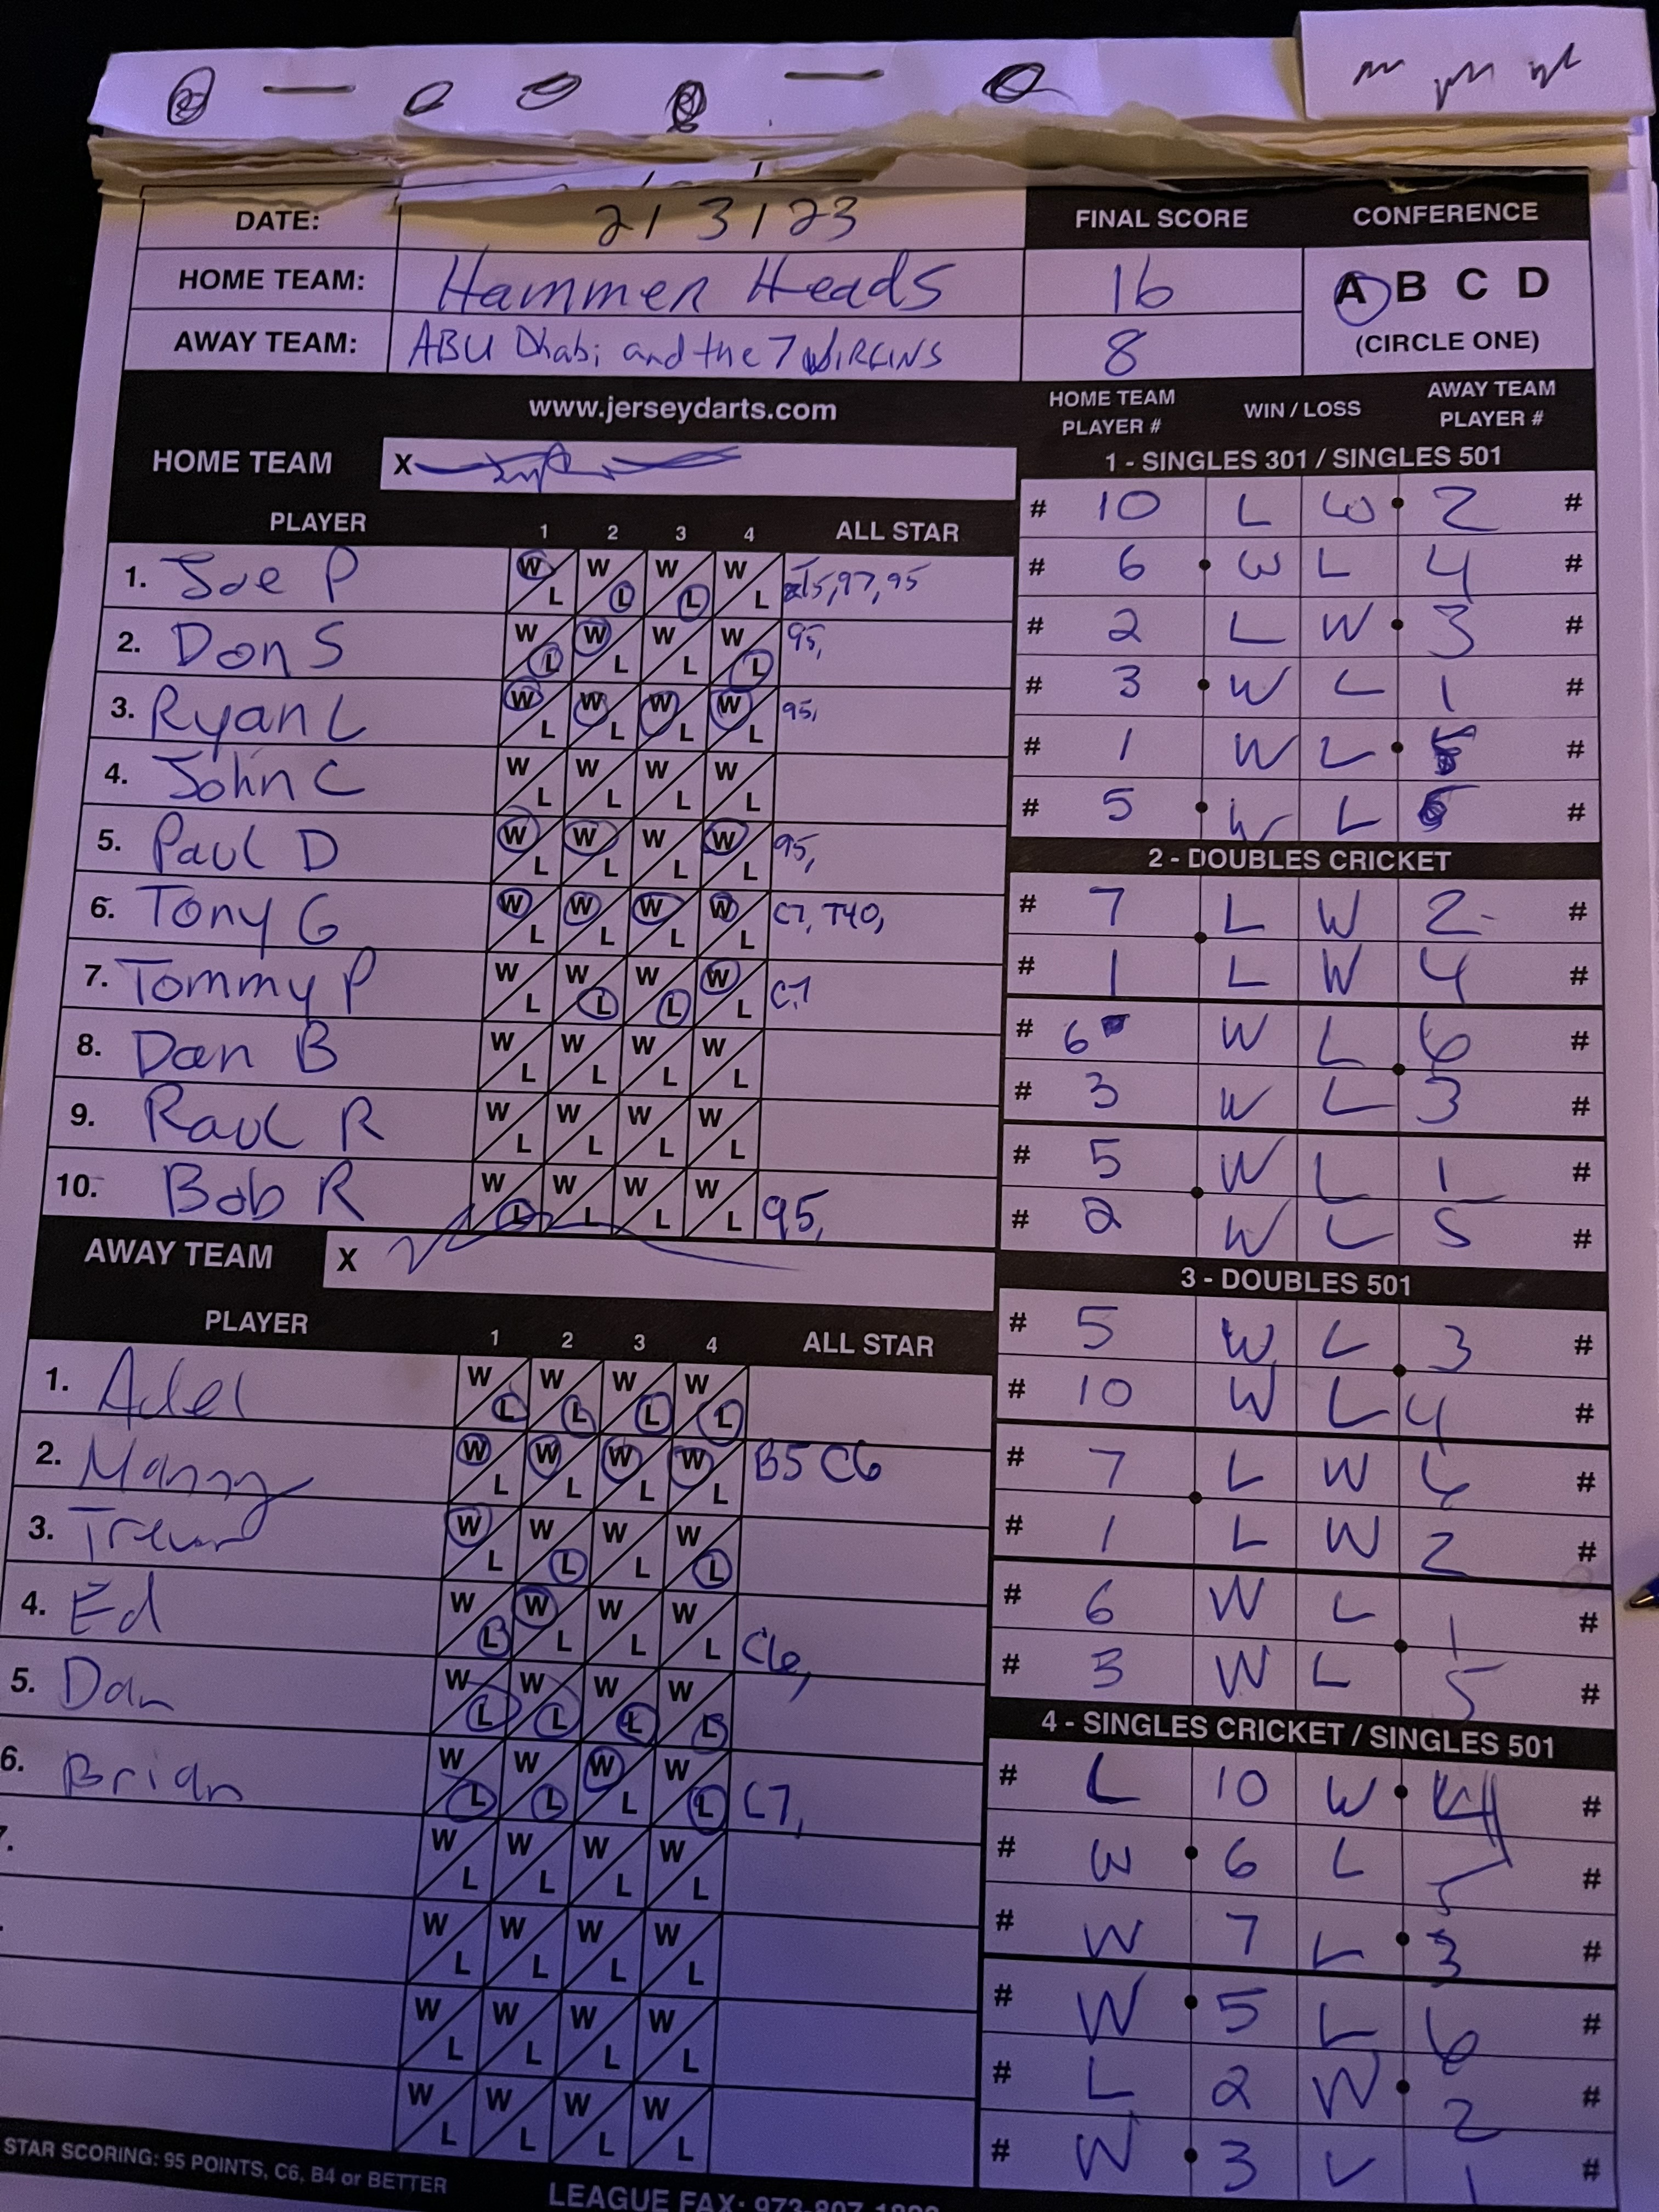 DATE: 2/3/23 FINAL SCORE CONFERENCE
HOME TEAM: Hammer Heads 16 A B C D
AWAY TEAM: ABU Dhabi and the 7 VIRGINS 8 (CIRCLE ONE)
www.jerseydarts.com HOME TEAM PLAYER # WIN / LOSS AWAY TEAM PLAYER #
HOME TEAM X
PLAYER 1 2 3 4 ALL STAR
1. Joe P W L W L W L W L 97, 95
2. Don S W L W L W L W L 95,
3. Ryan L W L W L W L W L 95,
4. John C W L W L W L W L
5. Paul D W L W L W L W L 95,
6. Tony G W L W L W L W L C7, T40,
7. Tommy P W L W L W L W L C7
8. Dan B W L W L W L W L
9. Raul R W L W L W L W L
10. Bob R W L W L W L W L 95,
AWAY TEAM X
PLAYER 1 2 3 4 ALL STAR
1. Adel W L W L W L W L
2. Manny W L W L W L W L B5 C6
3. Trevor W L W L W L W L
4. Ed W L W L W L W L C6,
5. Dan W L W L W L W L
6. Brian W L W L W L W L C7,
7. W L W L W L W L
W L W L W L W L
W L W L W L W L
W L W L W L W L
STAR SCORING: 95 POINTS, C6, B4 or BETTER
LEAGUE FAX: 973-807-
1 - SINGLES 301 / SINGLES 501
# 10 L W 2 #
# 6 W L 4 #
# 2 L W 3 #
# 3 W L 1 #
# 1 W L #
# 5 W L #
2 - DOUBLES CRICKET
# 7 L W 2 #
# 1 L W 4 #
# 6 W L 6 #
# 3 W L 3 #
# 5 W L 1 #
# 2 W L 5 #
3 - DOUBLES 501
# 5 W L 3 #
# 10 W L 4 #
# 7 L W 6 #
# 1 L W 2 #
# 6 W L 1 #
# 3 W L 5 #
4 - SINGLES CRICKET / SINGLES 501
# L 10 W 4 #
# W 6 L 5 #
# W 7 L 3 #
# W 5 L 6 #
# L 2 W 2 #
# W 3 L 1 #